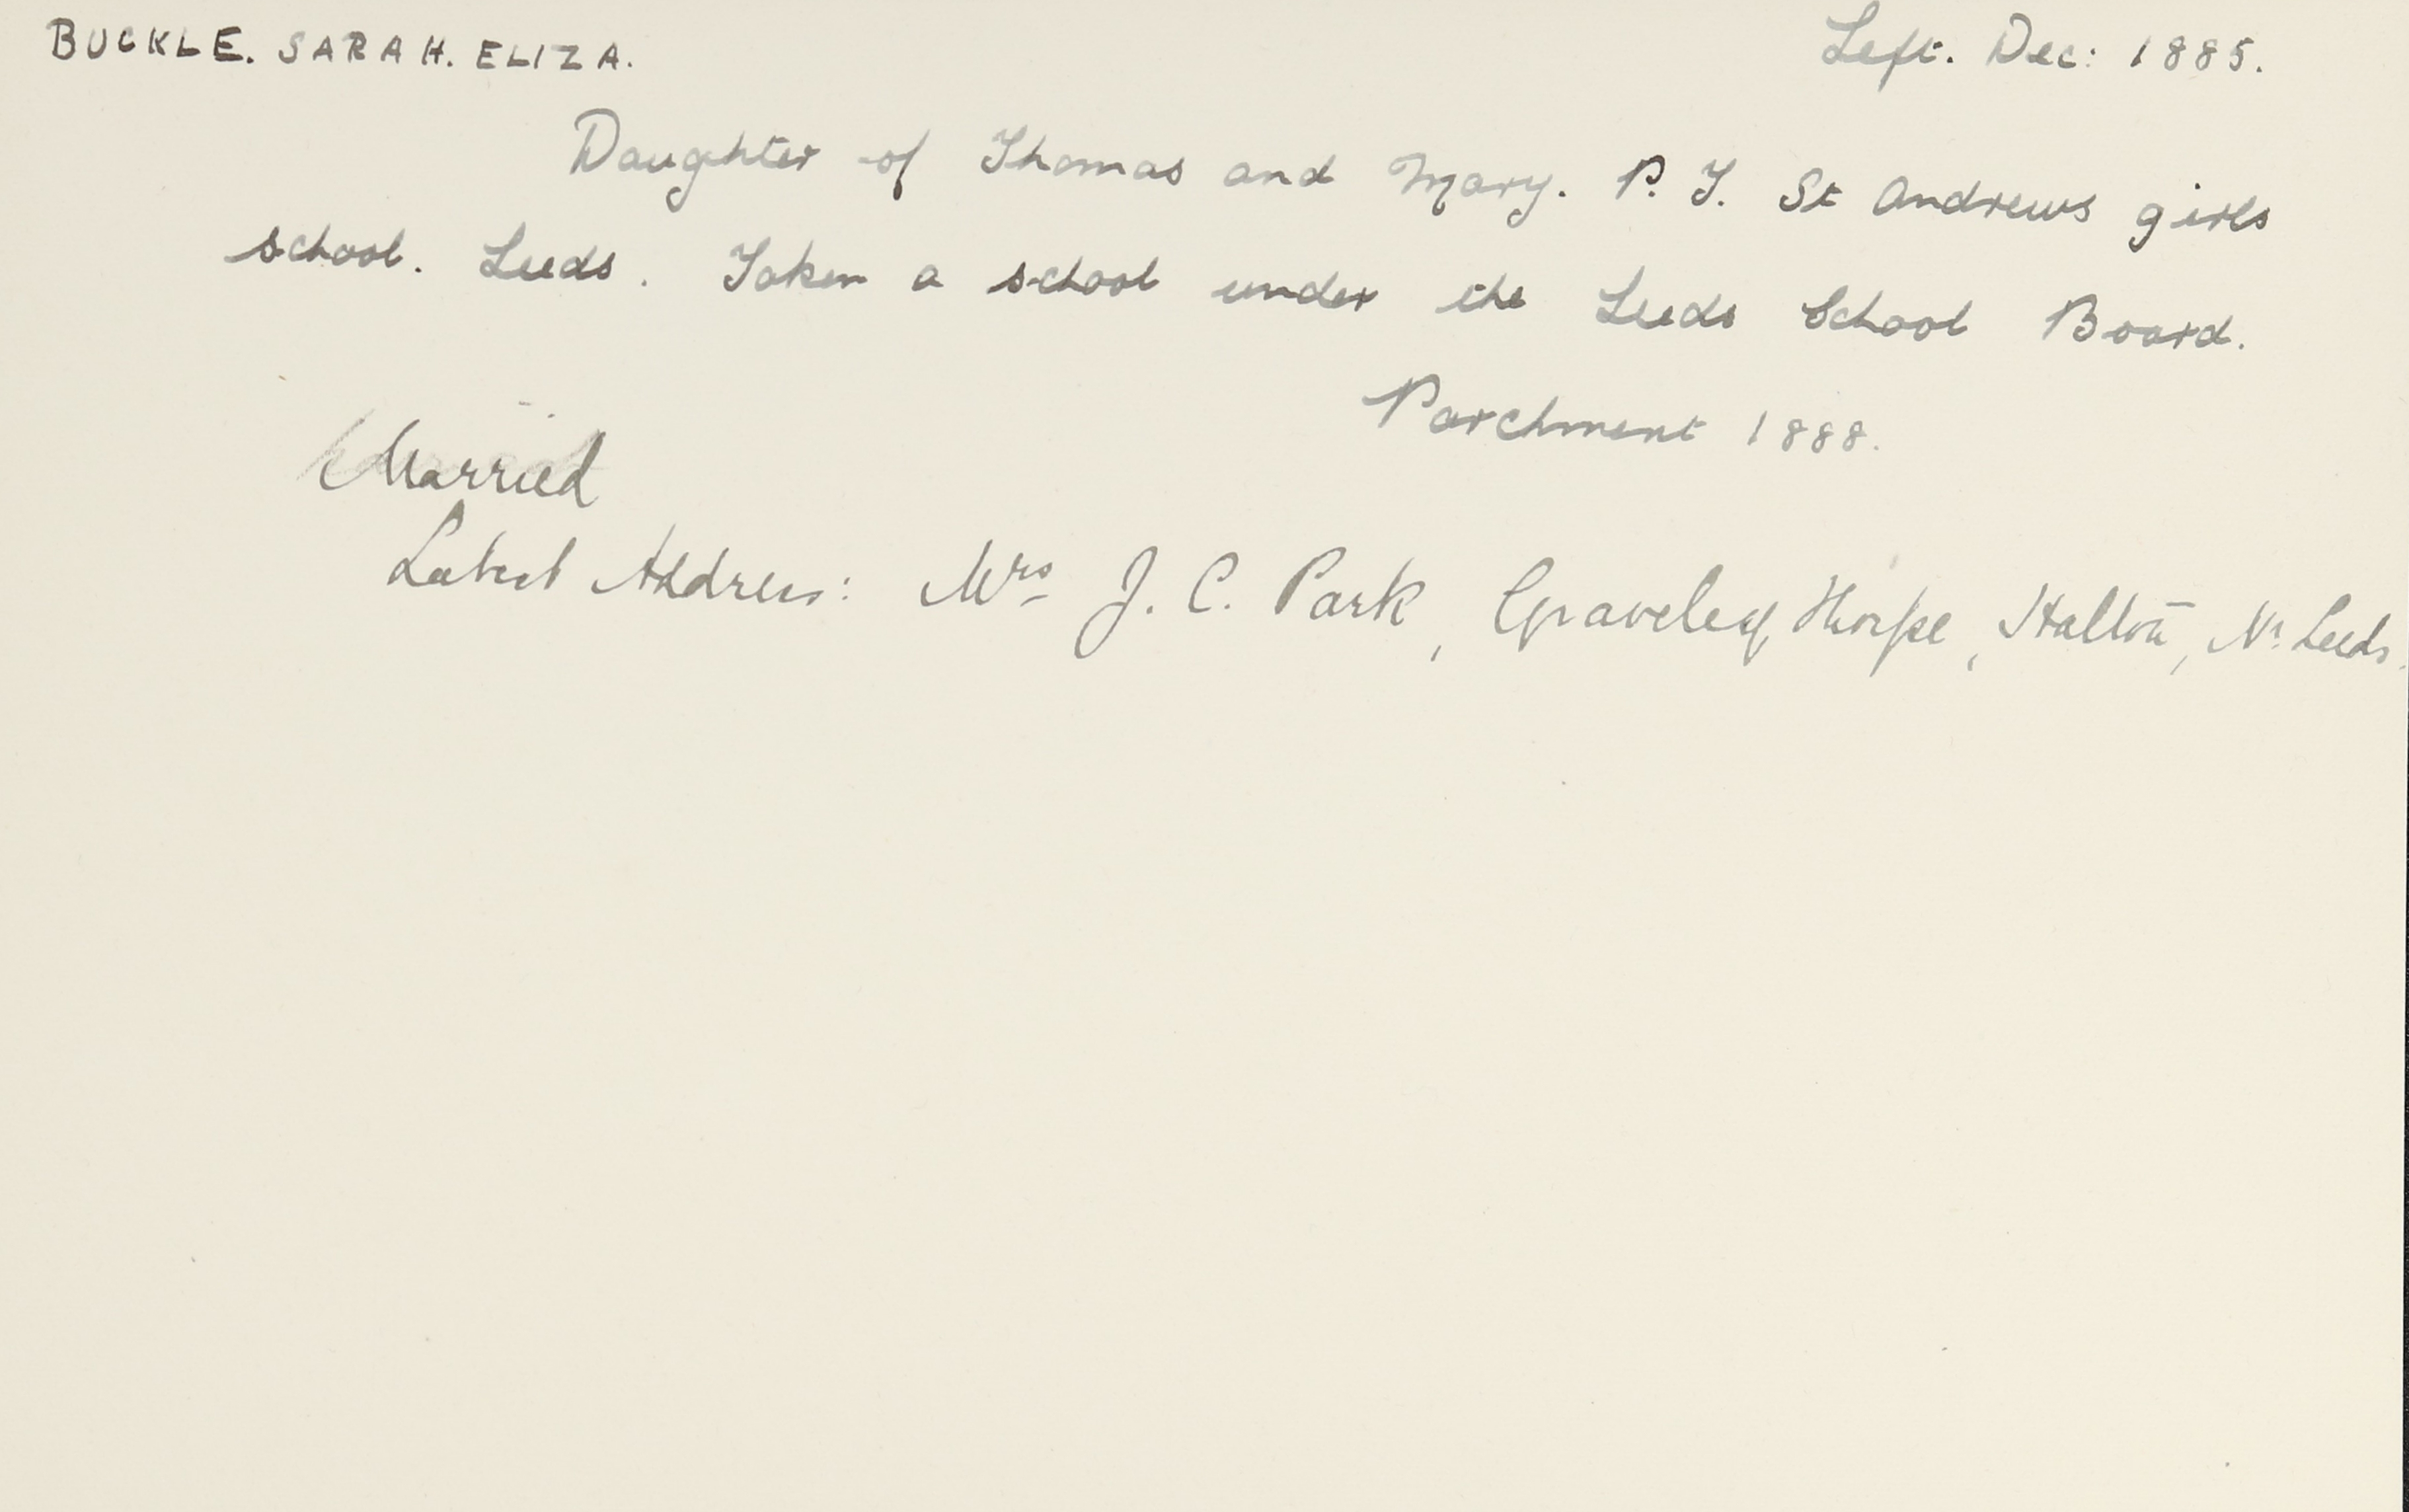 BUCKLE. SARAH. ELIZA. Left. Dec: 1885.
Daughter of Thomas and Mary. P. T. St Andrews girls
school. Leeds. Taken a school under the Leeds School Board.
Parchment 1888.
Married
Latest Address: Mrs J. C. Park, Graveley Thorpe, Halton, Nr Leeds.